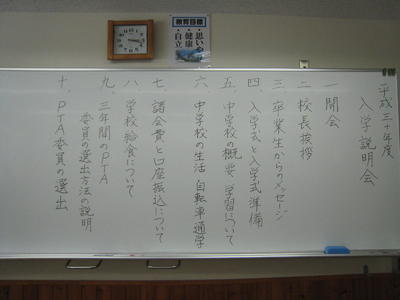 教育目標
思いやり
健康
自立
平成三十年度
入学説明会
一 開会
二 校長挨拶
三 卒業生からのメッセージ
四 入学式と入学式準備
五 中学校の概要 学習について
六 中学校の生活 自転車通学
七 諸会費と口座振込について
八 学校給食について
九 三年間のPTA
委員の選出方法の説明
十 PTA委員の選出